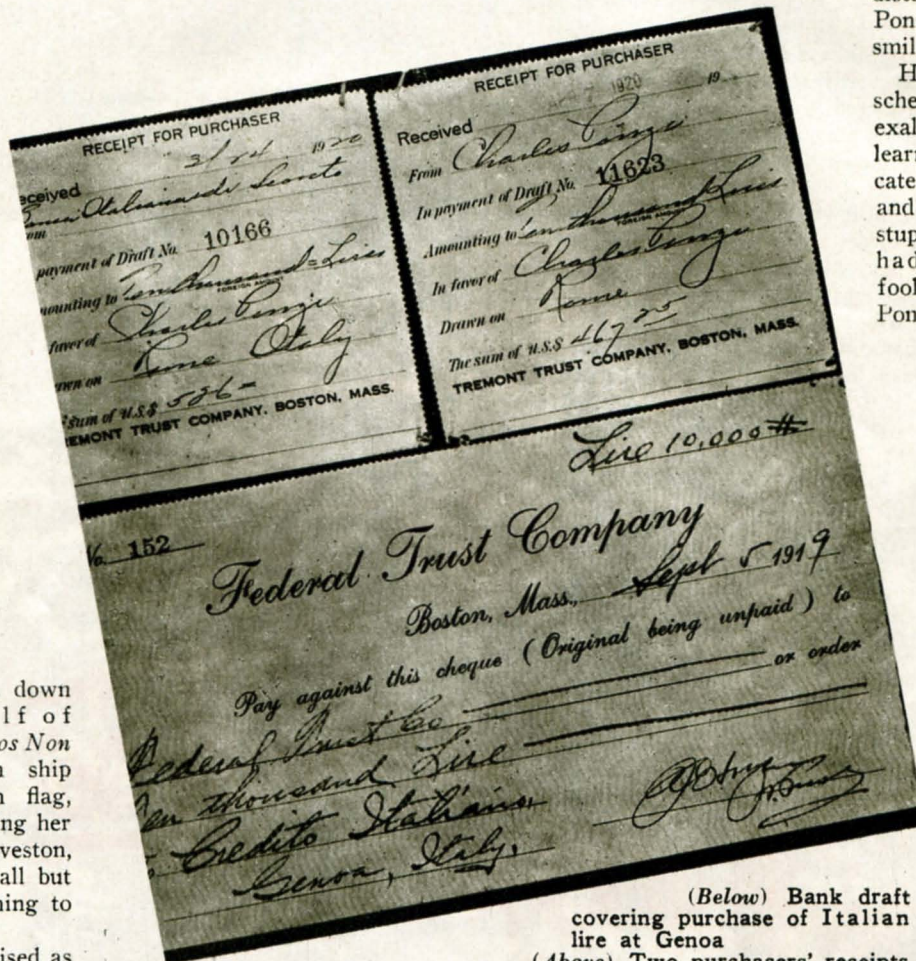 Pon
smil
H
sche
exal
learn
cate
and
stup
had
fool
Pon
RECEIPT FOR PURCHASER
3/24 1920
eceived
Italiana di Sconto
payment of Draft No. 10166
mounting to Ten thousand = Lires
favor of Charles Ponzi
wn on Rome Italy
sum of U.S.$ 526-
EMONT TRUST COMPANY, BOSTON, MASS.
RECEIPT FOR PURCHASER
7 1920 19
Received
From Charles Ponzi
In payment of Draft No. 11623
Amounting to Ten thousand Lires
In favor of Charles Ponzi
Drawn on Rome
The sum of U.S.$ 467 25
TREMONT TRUST COMPANY, BOSTON, MASS.
Lire 10,000
No. 152
Federal Trust Company
Boston, Mass., Sept 5 1919
Pay against this cheque (Original being unpaid) to
Federal Trust Co or order
Ten thousand Lire
Credito Italiano,
Genoa, Italy.
down
lf of
os Non
ship
flag,
ng her
veston,
all but
ning to
ised as
(Below) Bank draft
covering purchase of Italian
lire at Genoa
(Above) Two purchasers' receipts